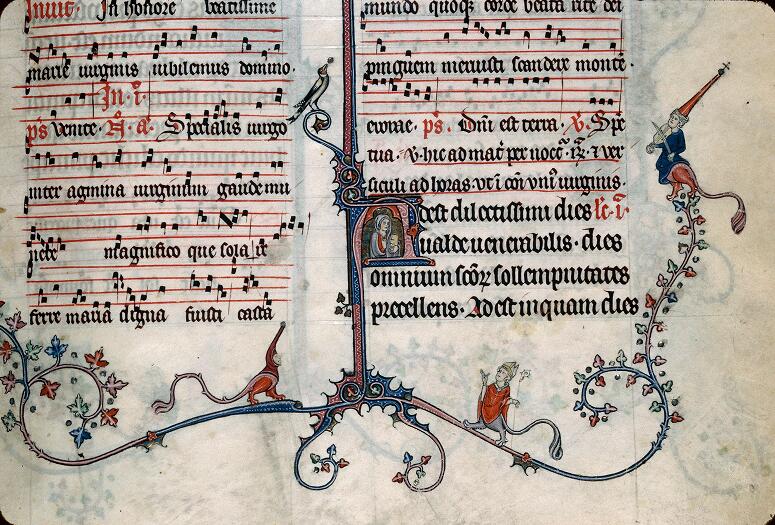 Invit. In honore beatissime
marie uirginis iubilemus domino.
In. i.
ps venite. A. Specialis uirgo
inter agmina uirginum gaude
magnifico que sola
ferre maria digna fuisti casta
mundo quoqz corde beata rite dei
pinguem meruisti scandere montē.
eurae. ps. Dnī est terra. V. Spē
tua. V. hic ad mat per noct. et ver
siculi ad horas. uniꝰ uirginis.
Adest dilectissimi dies lc. i.
ualde uenerabilis. dies
omnium scōꝝ sollempnitates
precellens. Adest inquam dies